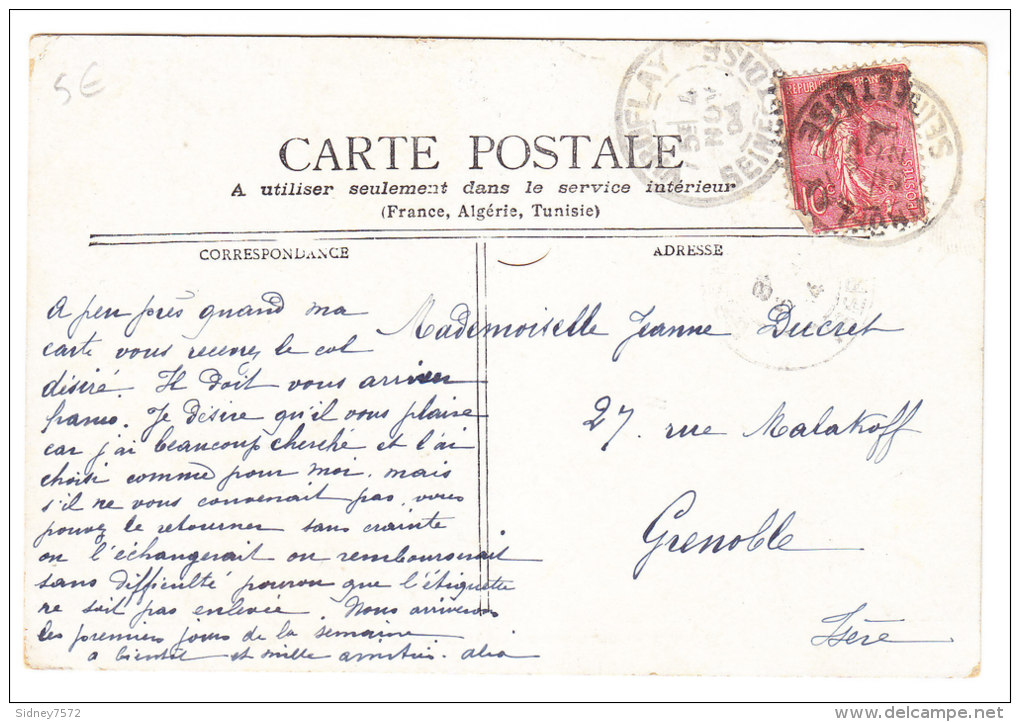 5€
VIROFLAY
SEINE-ET-OISE
RÉPUBLIQUE FRANÇAISE
POSTES
10c
CARTE POSTALE
A utiliser seulement dans le service intérieur
(France, Algérie, Tunisie)
CORRESPONDANCE
ADRESSE
A peu près quand ma
carte vous recevrez le col
désiré. Il doit vous arriver
franco. Je désire qu'il vous plaise
car j'ai beaucoup cherché et l'ai
choisi comme pour moi. mais
s'il ne vous convenait pas, vous
pouvez le retourner sans crainte
on l'échangerait ou rembourserait
sans difficulté pourvu que l'étiquette
ne soit pas enlevée. Nous arriverons
les premiers jours de la semaine
a bientôt et mille amitiés.
Mademoiselle Jeanne Ducret
27. rue Malakoff
Grenoble
Isère
Sidney7572
delcampe.net